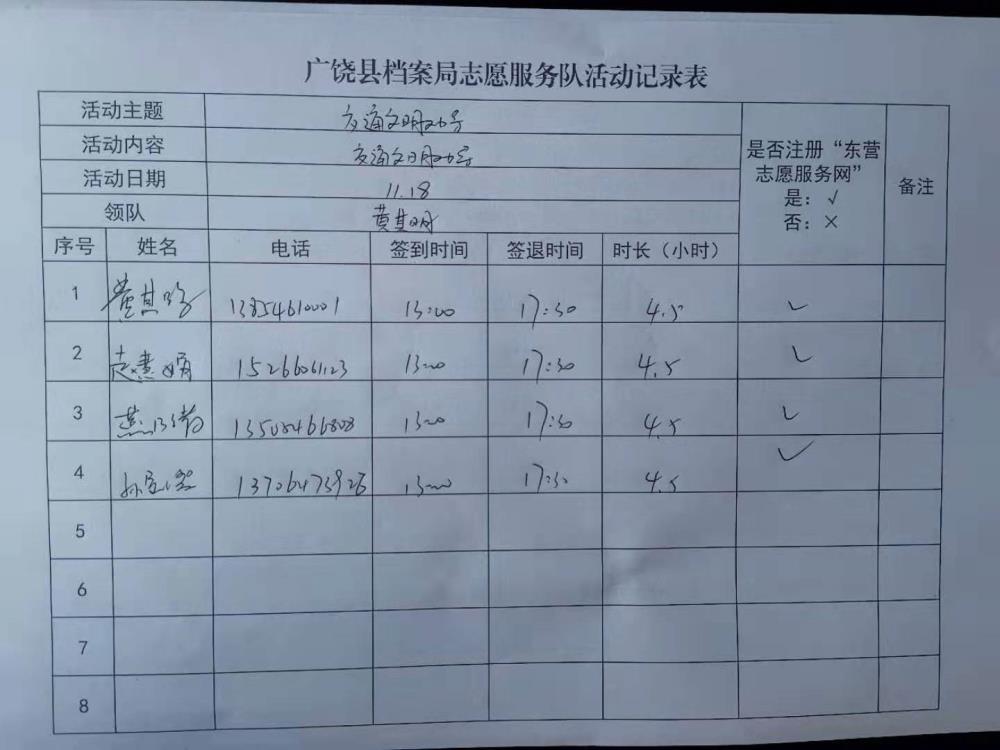 广饶县档案局志愿服务队活动记录表
活动主题 交通文明
活动内容 交通文明
活动日期 11.18
领队 黄其明
是否注册“东营
志愿服务网”
是：√
否：×
备注
序号 姓名 电话 签到时间 签退时间 时长（小时）
1 黄其 13854610001 13:00 17:30 4.5 ✓
2 15266061123 13:00 17:30 4.5 ✓
3 燕 13:00 17:30 4.5 ✓
4 孙 13:00 17:30 4.5 ✓
5
6
7
8